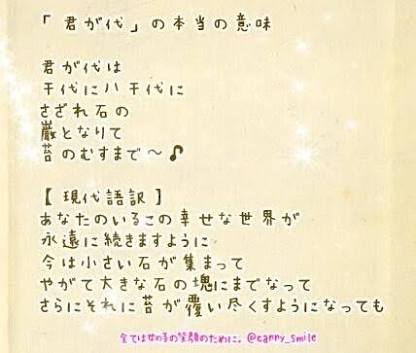 「君が代」の本当の意味
君が代は
千代に八千代に
さざれ石の
巌となりて
苔のむすまで〜♪
【現代語訳】
あなたのいるこの幸せな世界が
永遠に続きますように
今は小さい石が集まって
やがて大きな石の塊にまでなって
さらにそれに苔が覆い尽くすようになっても
全ては女の子の笑顔のために。@canny_smile